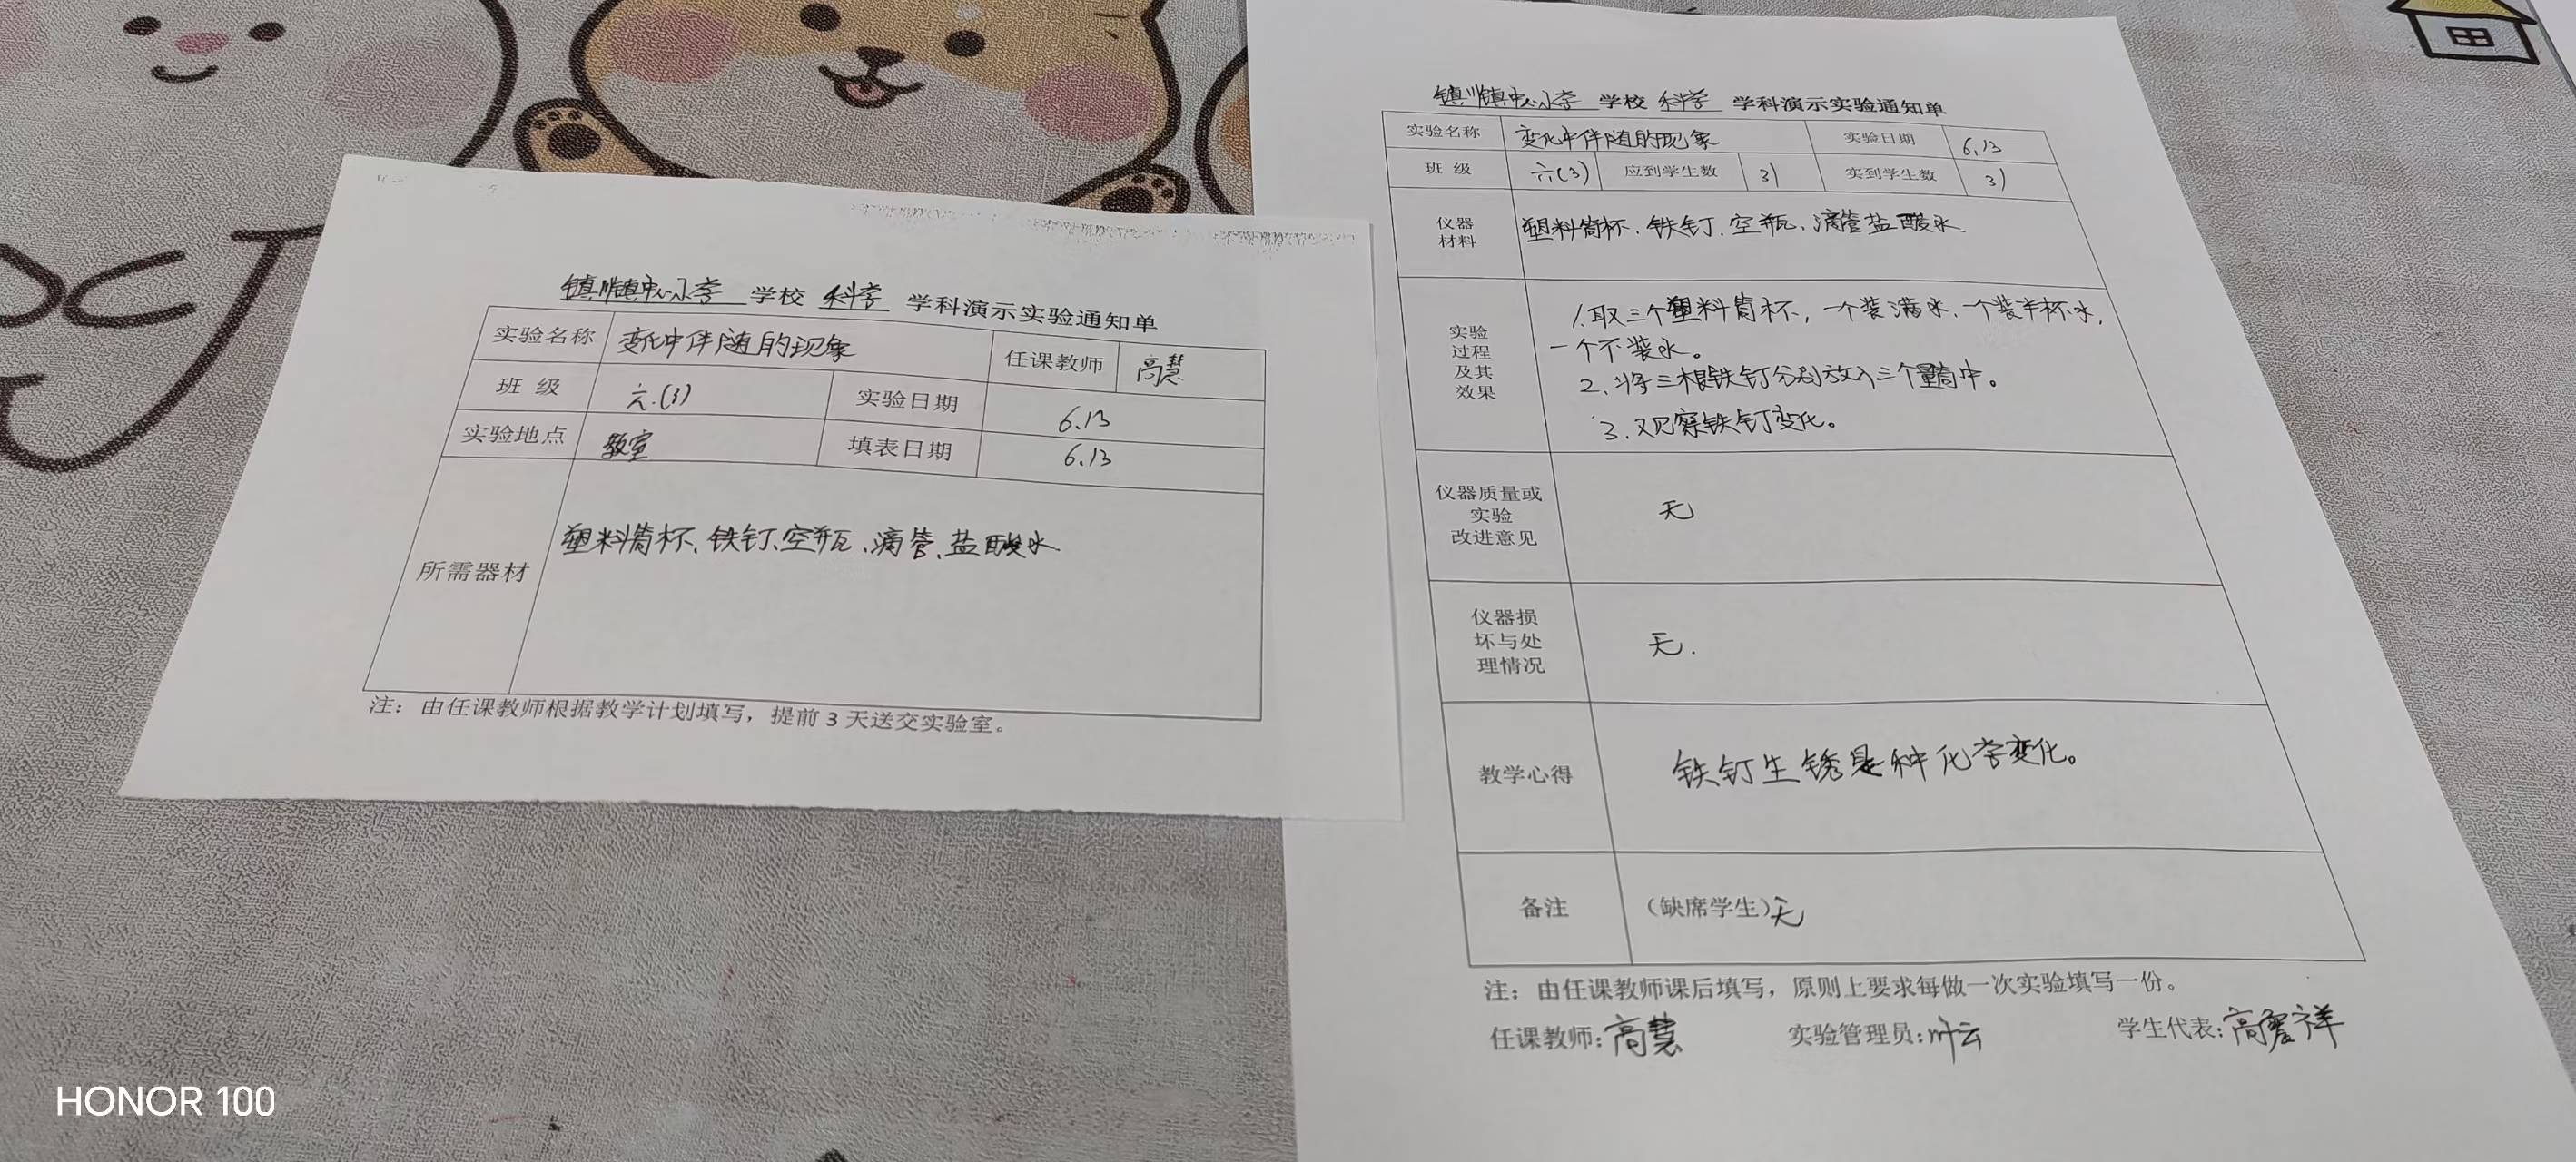 镇川镇中心小学 学校 科学 学科演示实验通知单
实验名称 变化中伴随的现象 任课教师 高慧
班 级 六.(3) 实验日期 6.13
实验地点 教室 填表日期 6.13
所需器材 塑料筒杯、铁钉、空瓶、滴管、盐酸水.
注：由任课教师根据教学计划填写，提前 3 天送交实验室。
镇川镇中心小学 学校 科学 学科演示实验通知单
实验名称 变化中伴随的现象 实验日期 6.13
班 级 六(3) 应到学生数 31 实到学生数 31
仪器
材料
塑料筒杯、铁钉、空瓶、滴管盐酸水.
实验
过程
及其
效果
1.取三个塑料筒杯，一个装满水.一个装半杯水，
一个不装水。
2.将三根铁钉分别放入三个量筒中。
3.观察铁钉变化。
仪器质量或
实验
改进意见
无
仪器损
坏与处
理情况
无.
教学心得 铁钉生锈是种化学变化。
备注 （缺席学生）无
注：由任课教师课后填写，原则上要求每做一次实验填写一份。
任课教师：高慧 实验管理员：叶云 学生代表：高 祥
HONOR 100